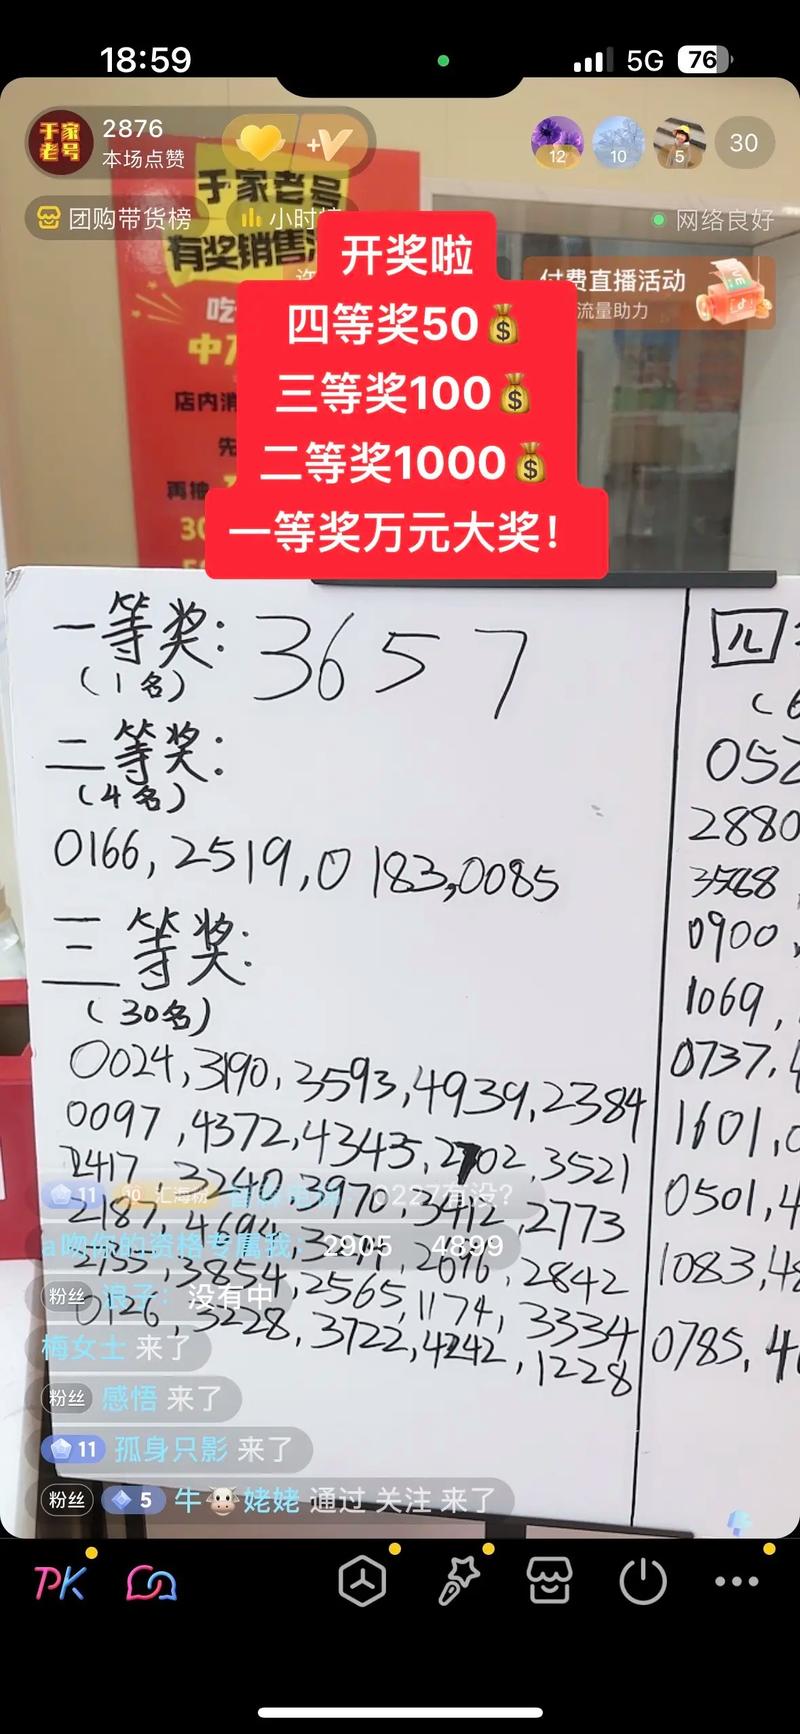 18:59
5G
76
于家老号
2876
本场点赞
+V
12
10
5
30
团购带货榜
小时榜
网络良好
于家老号
有奖销售活
付费直播活动
流量助力
开奖啦
四等奖50💰
三等奖100💰
二等奖1000💰
一等奖万元大奖！
店内消
再抽
一等奖：3657
（1名）
二等奖：
（4名）
0166，2519，0183，0085
三等奖：
（30名）
0024，3190，3593，4939，2384
0097，4372，4345，2702，3521
2417，3240，3970，3412，2773
2187，4694
3854，2565，1174，3334
2842
0126，3228，3722，4242，1228
四
052
2880
3568
0900，
1069，
0737，
1601，
0501，4
1083，48
0785，4
11
0227有没？
a吻你的资格专属我： 2905 4899
粉丝 浪子： 没有中
梅女士 来了
粉丝 感悟 来了
11 孤身只影 来了
粉丝 5 牛🐮姥姥 通过 关注 来了
PK